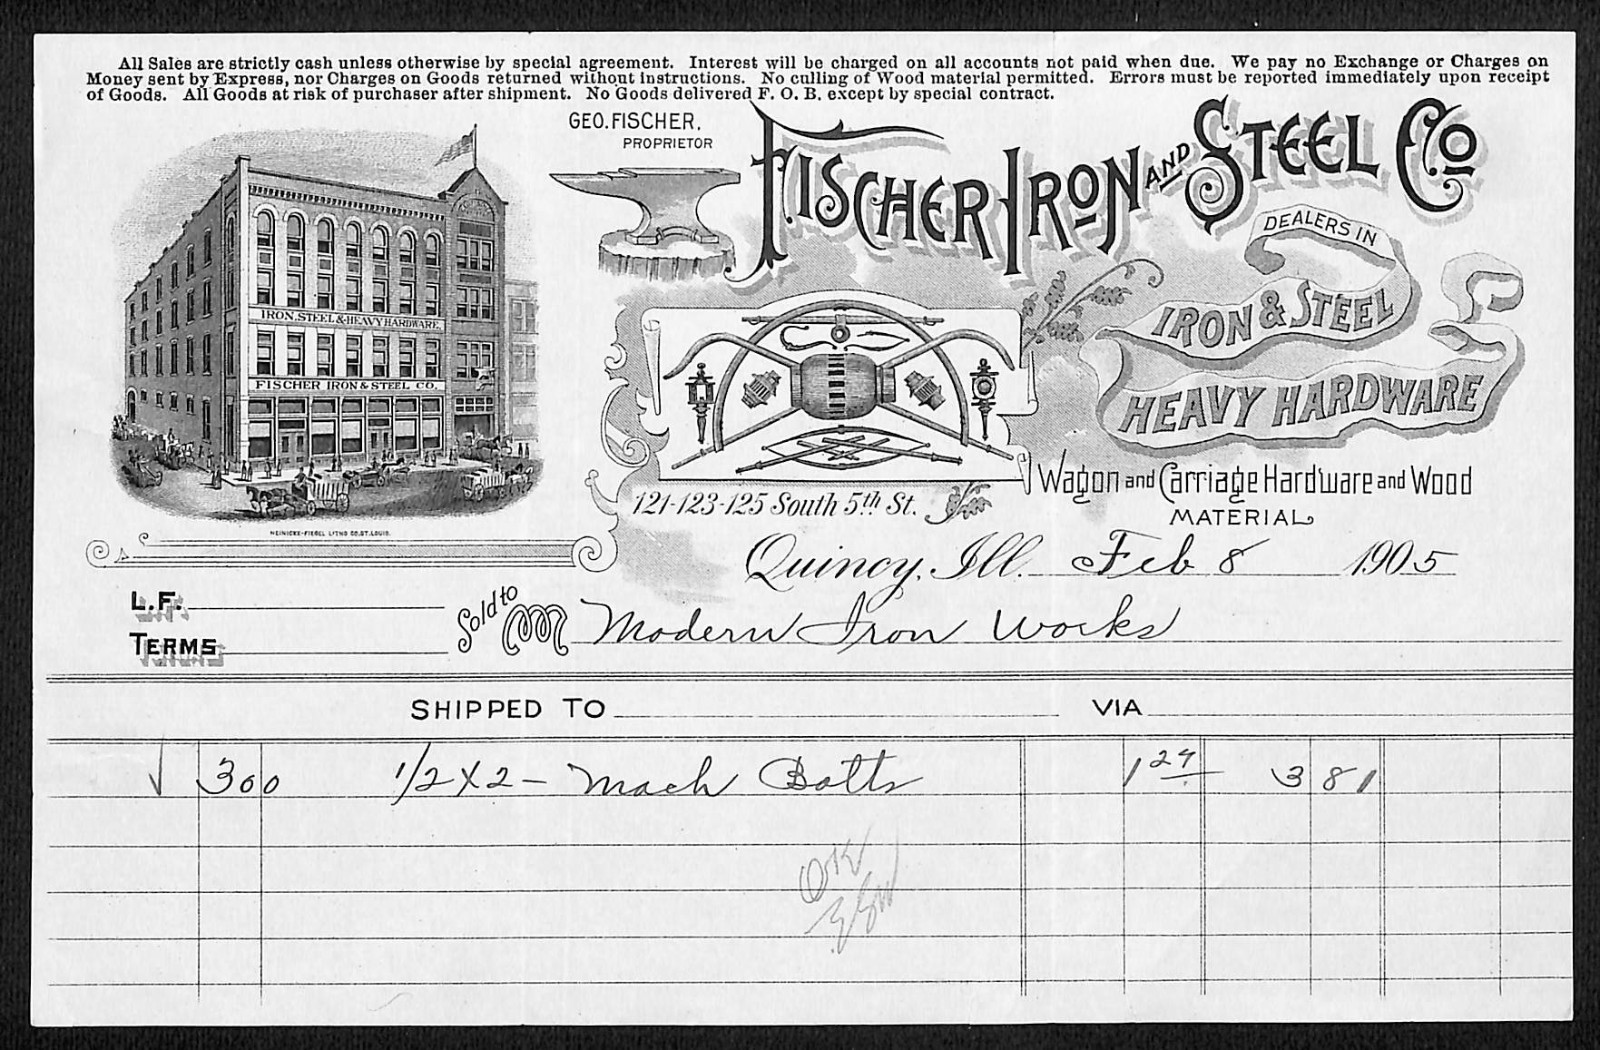 All Sales are strictly cash unless otherwise by special agreement. Interest will be charged on all accounts not paid when due. We pay no Exchange or Charges on
Money sent by Express, nor Charges on Goods returned without instructions. No culling of Wood material permitted. Errors must be reported immediately upon receipt
of Goods. All Goods at risk of purchaser after shipment. No Goods delivered F. O. B. except by special contract.
GEO. FISCHER,
PROPRIETOR
FISCHER IRON AND STEEL CO
DEALERS IN
IRON & STEEL
HEAVY HARDWARE
IRON, STEEL & HEAVY HARDWARE.
FISCHER IRON & STEEL CO.
Wagon and Carriage Hardware and Wood
MATERIAL
121-123-125 South 5th St.
HEINICKE-FIEGEL LITHO CO. ST. LOUIS.
Quincy, Ill. Feb 8 1905
L.F.
TERMS
Sold to M Modern Iron Works
SHIPPED TO VIA
√ 300 1/2 X 2 - Mach Bolts 3 81
OK